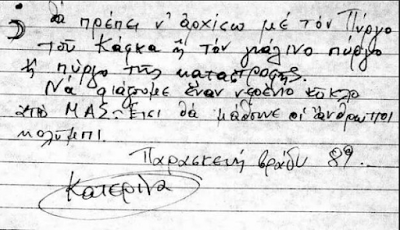 θά πρέπει ν' ἀρχίσω μέ τόν Πύργο
τοῦ Κάφκα ἤ τόν γιάλινο πύργο
ἤ πύργο τῆς καταστροφῆς.
Νά φιάξουμε ἕναν νερένιο κύκλο
ἀπό ΜΑΣ. Ἔτσι θά μάθουνε οἱ ἄνθρωποι
κολύμπι.
Παρασκευή βράδυ 89..
Κατερίνα